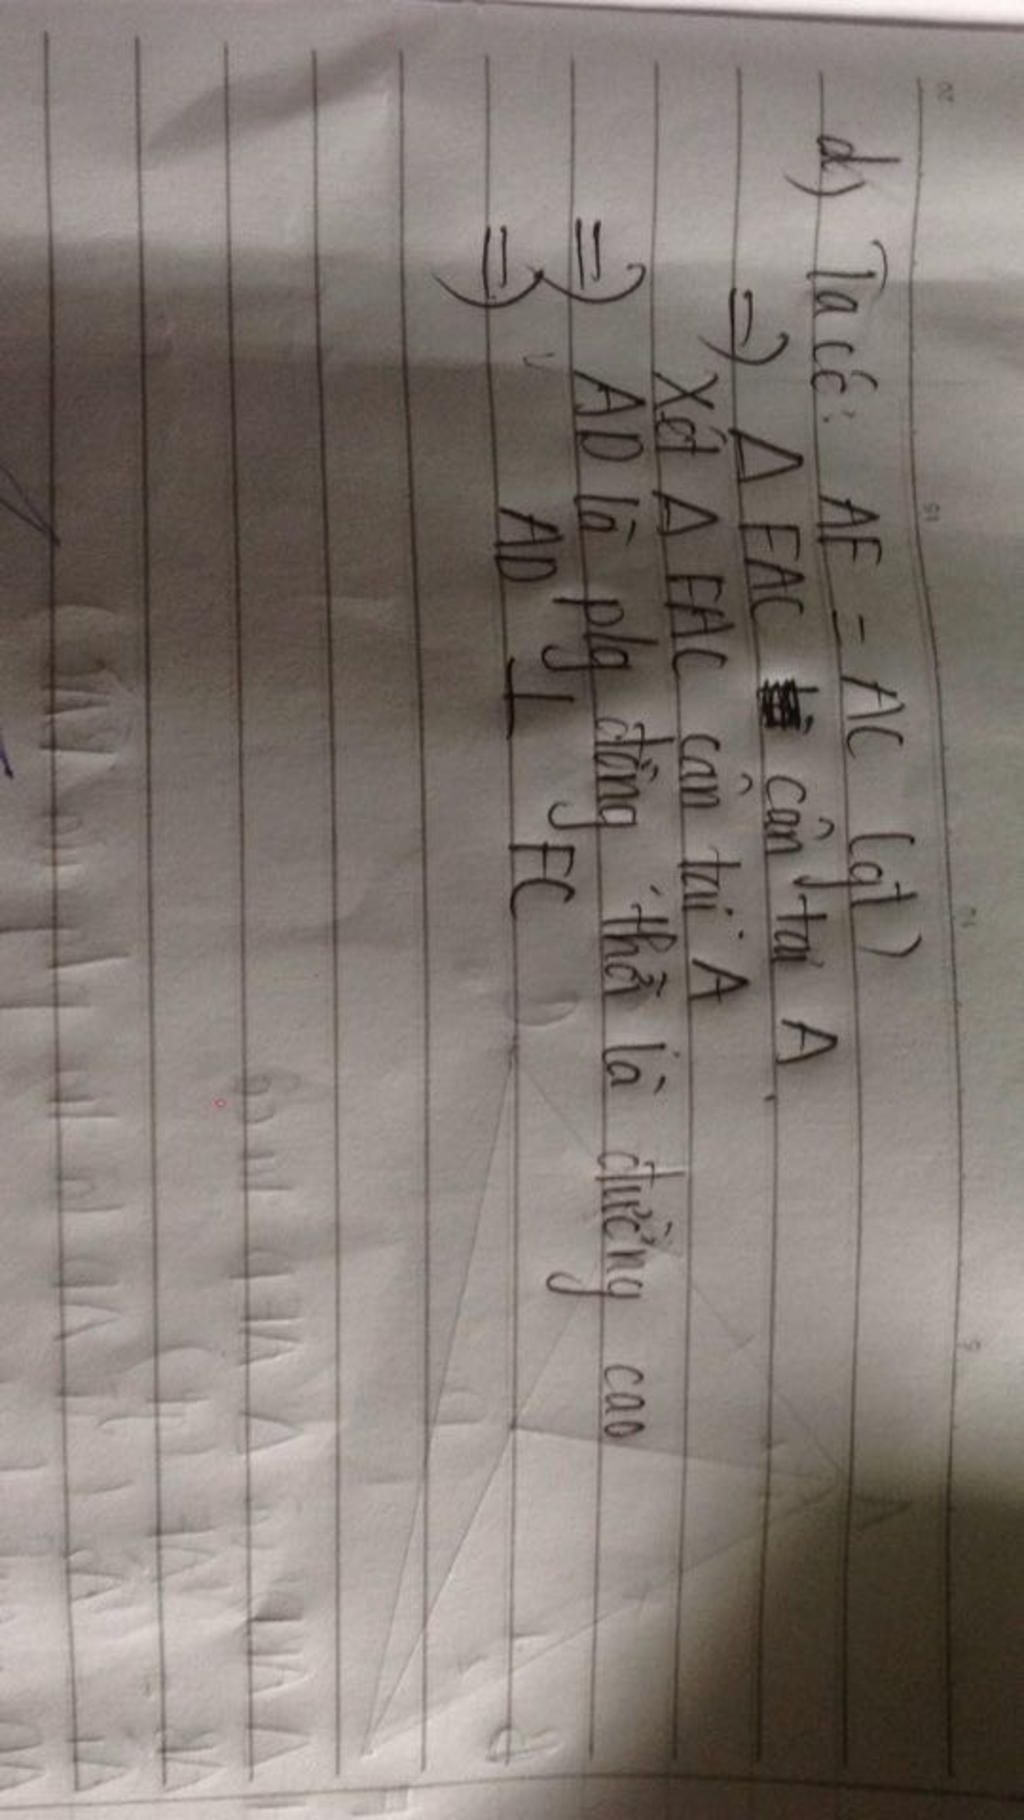 d) Ta có: AF = AC (gt)
=) Δ FAC cân tại A
Xét Δ FAC cân tại A
=) AD là plg đồng thời là đường cao
=) AD ⊥ FC